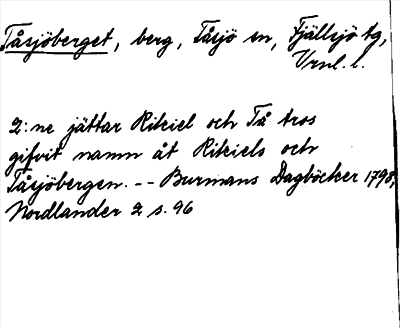 Tåsjöberget, berg, Tåsjö sn, Fjällsjö tg,
Vrnl. l.
2:ne jättar Rikiel och Tå tros
gifvit namn åt Rikiels och
Tåsjöbergen. -- Burmans Dagböcker 1798,
Nordlander 2 s. 96